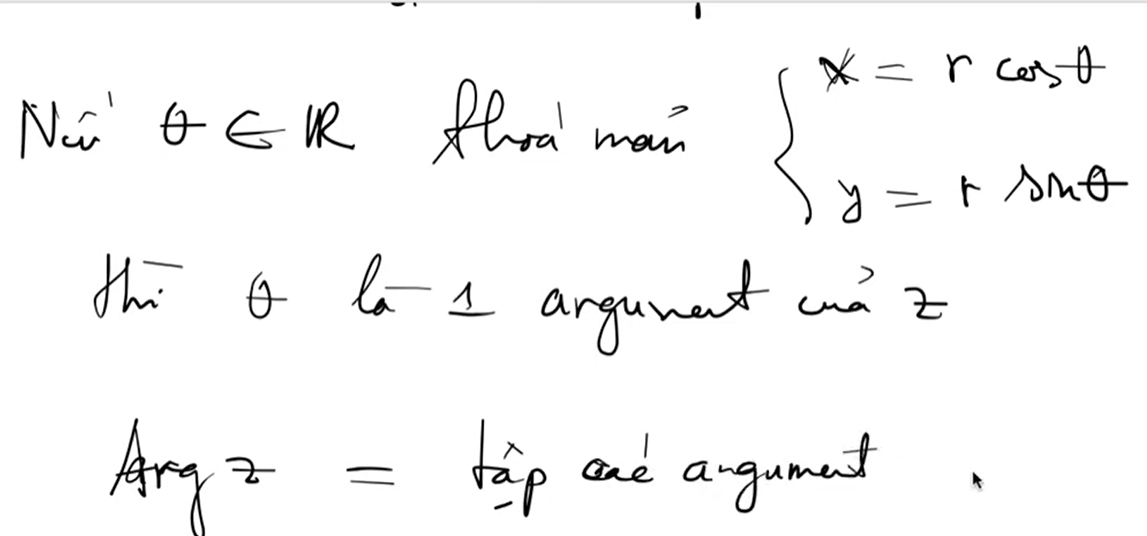 Nếu θ ∈ ℝ thoả mãn { x = r cosθ
y = r sinθ
thì θ là 1 argument của z
Arg z = tập các argument